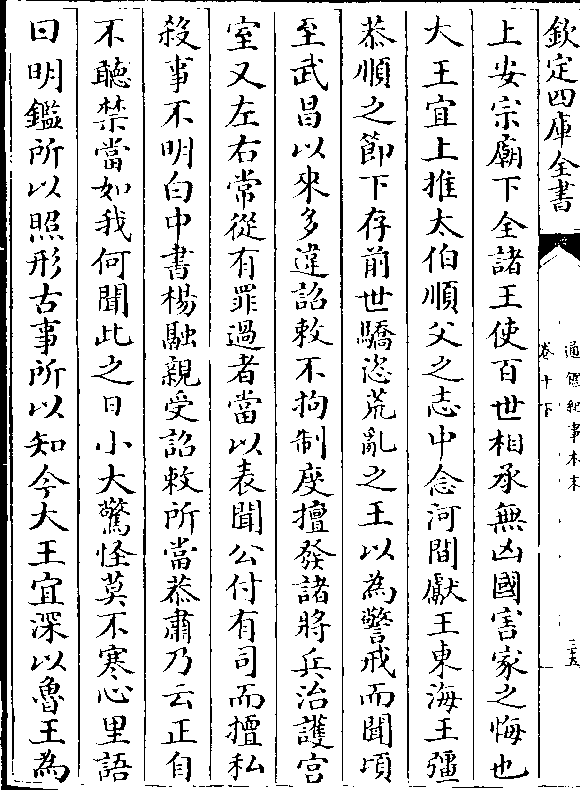 欽定四庫全書
通鑑紀事本末
卷十下
三五
上安宗廟下全諸王使百世相承無凶國害家之悔也
大王宜上推太伯順父之志中念河間獻王東海王彊
恭順之節下存前世驕恣荒亂之王以為警戒而聞頃
至武昌以來多違詔敕不拘制度擅發諸將兵治護宮
室又左右常從有罪過者當以表聞公付有司而擅私
殺事不明白中書楊融親受詔敕所當恭肅乃云正自
不聽禁當如我何聞此之日小大驚怪莫不寒心里語
曰明鑑所以照形古事所以知今大王宜深以魯王為